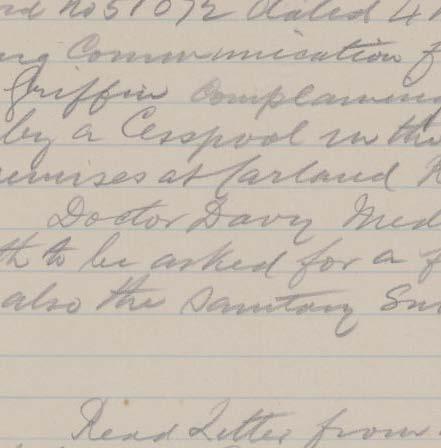 no 51092 dated 4
Communication f
Griffin Complaining
by a Cesspool in the
remises at Carland R
Doctor Davy Med
th to be asked for a f
also the Sanitary Su
Read Letter from